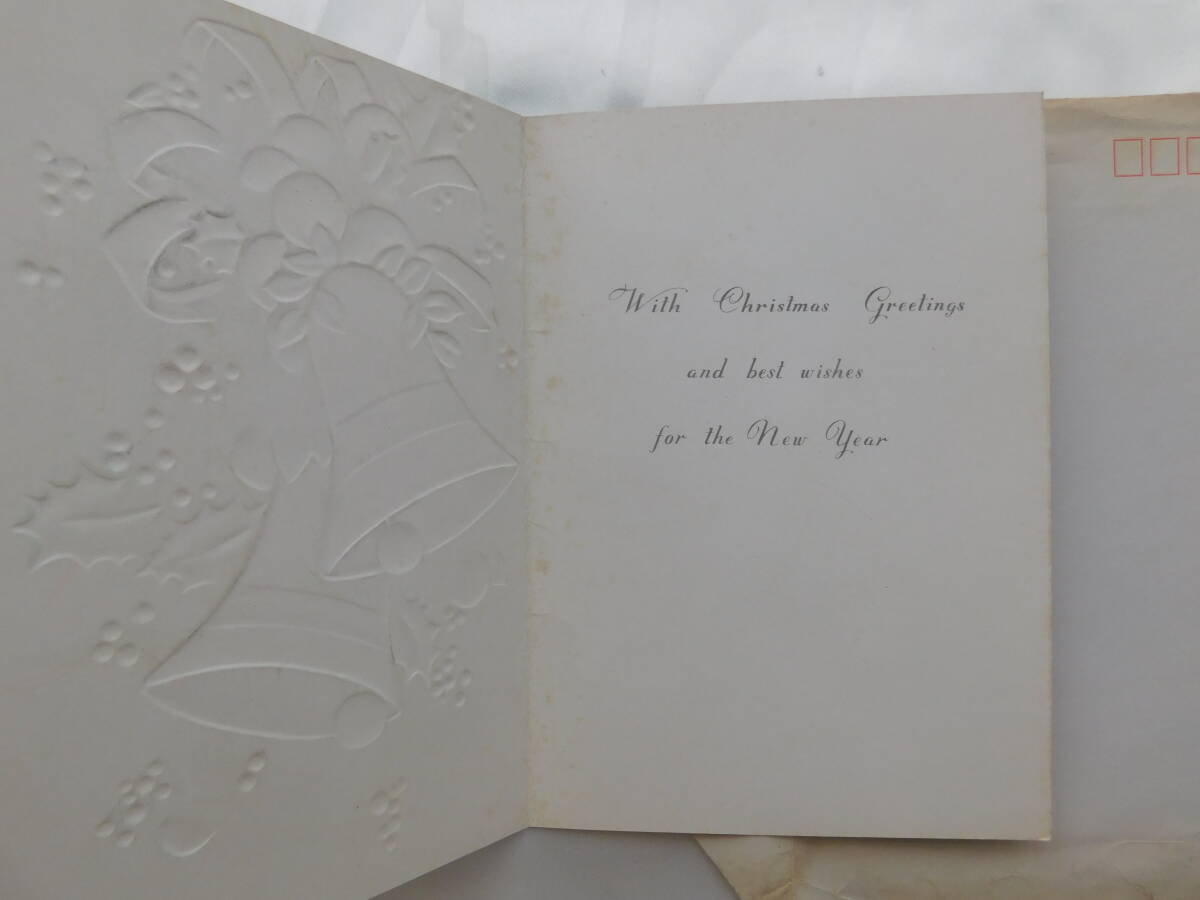 With Christmas Greetings
and best wishes
for the New Year